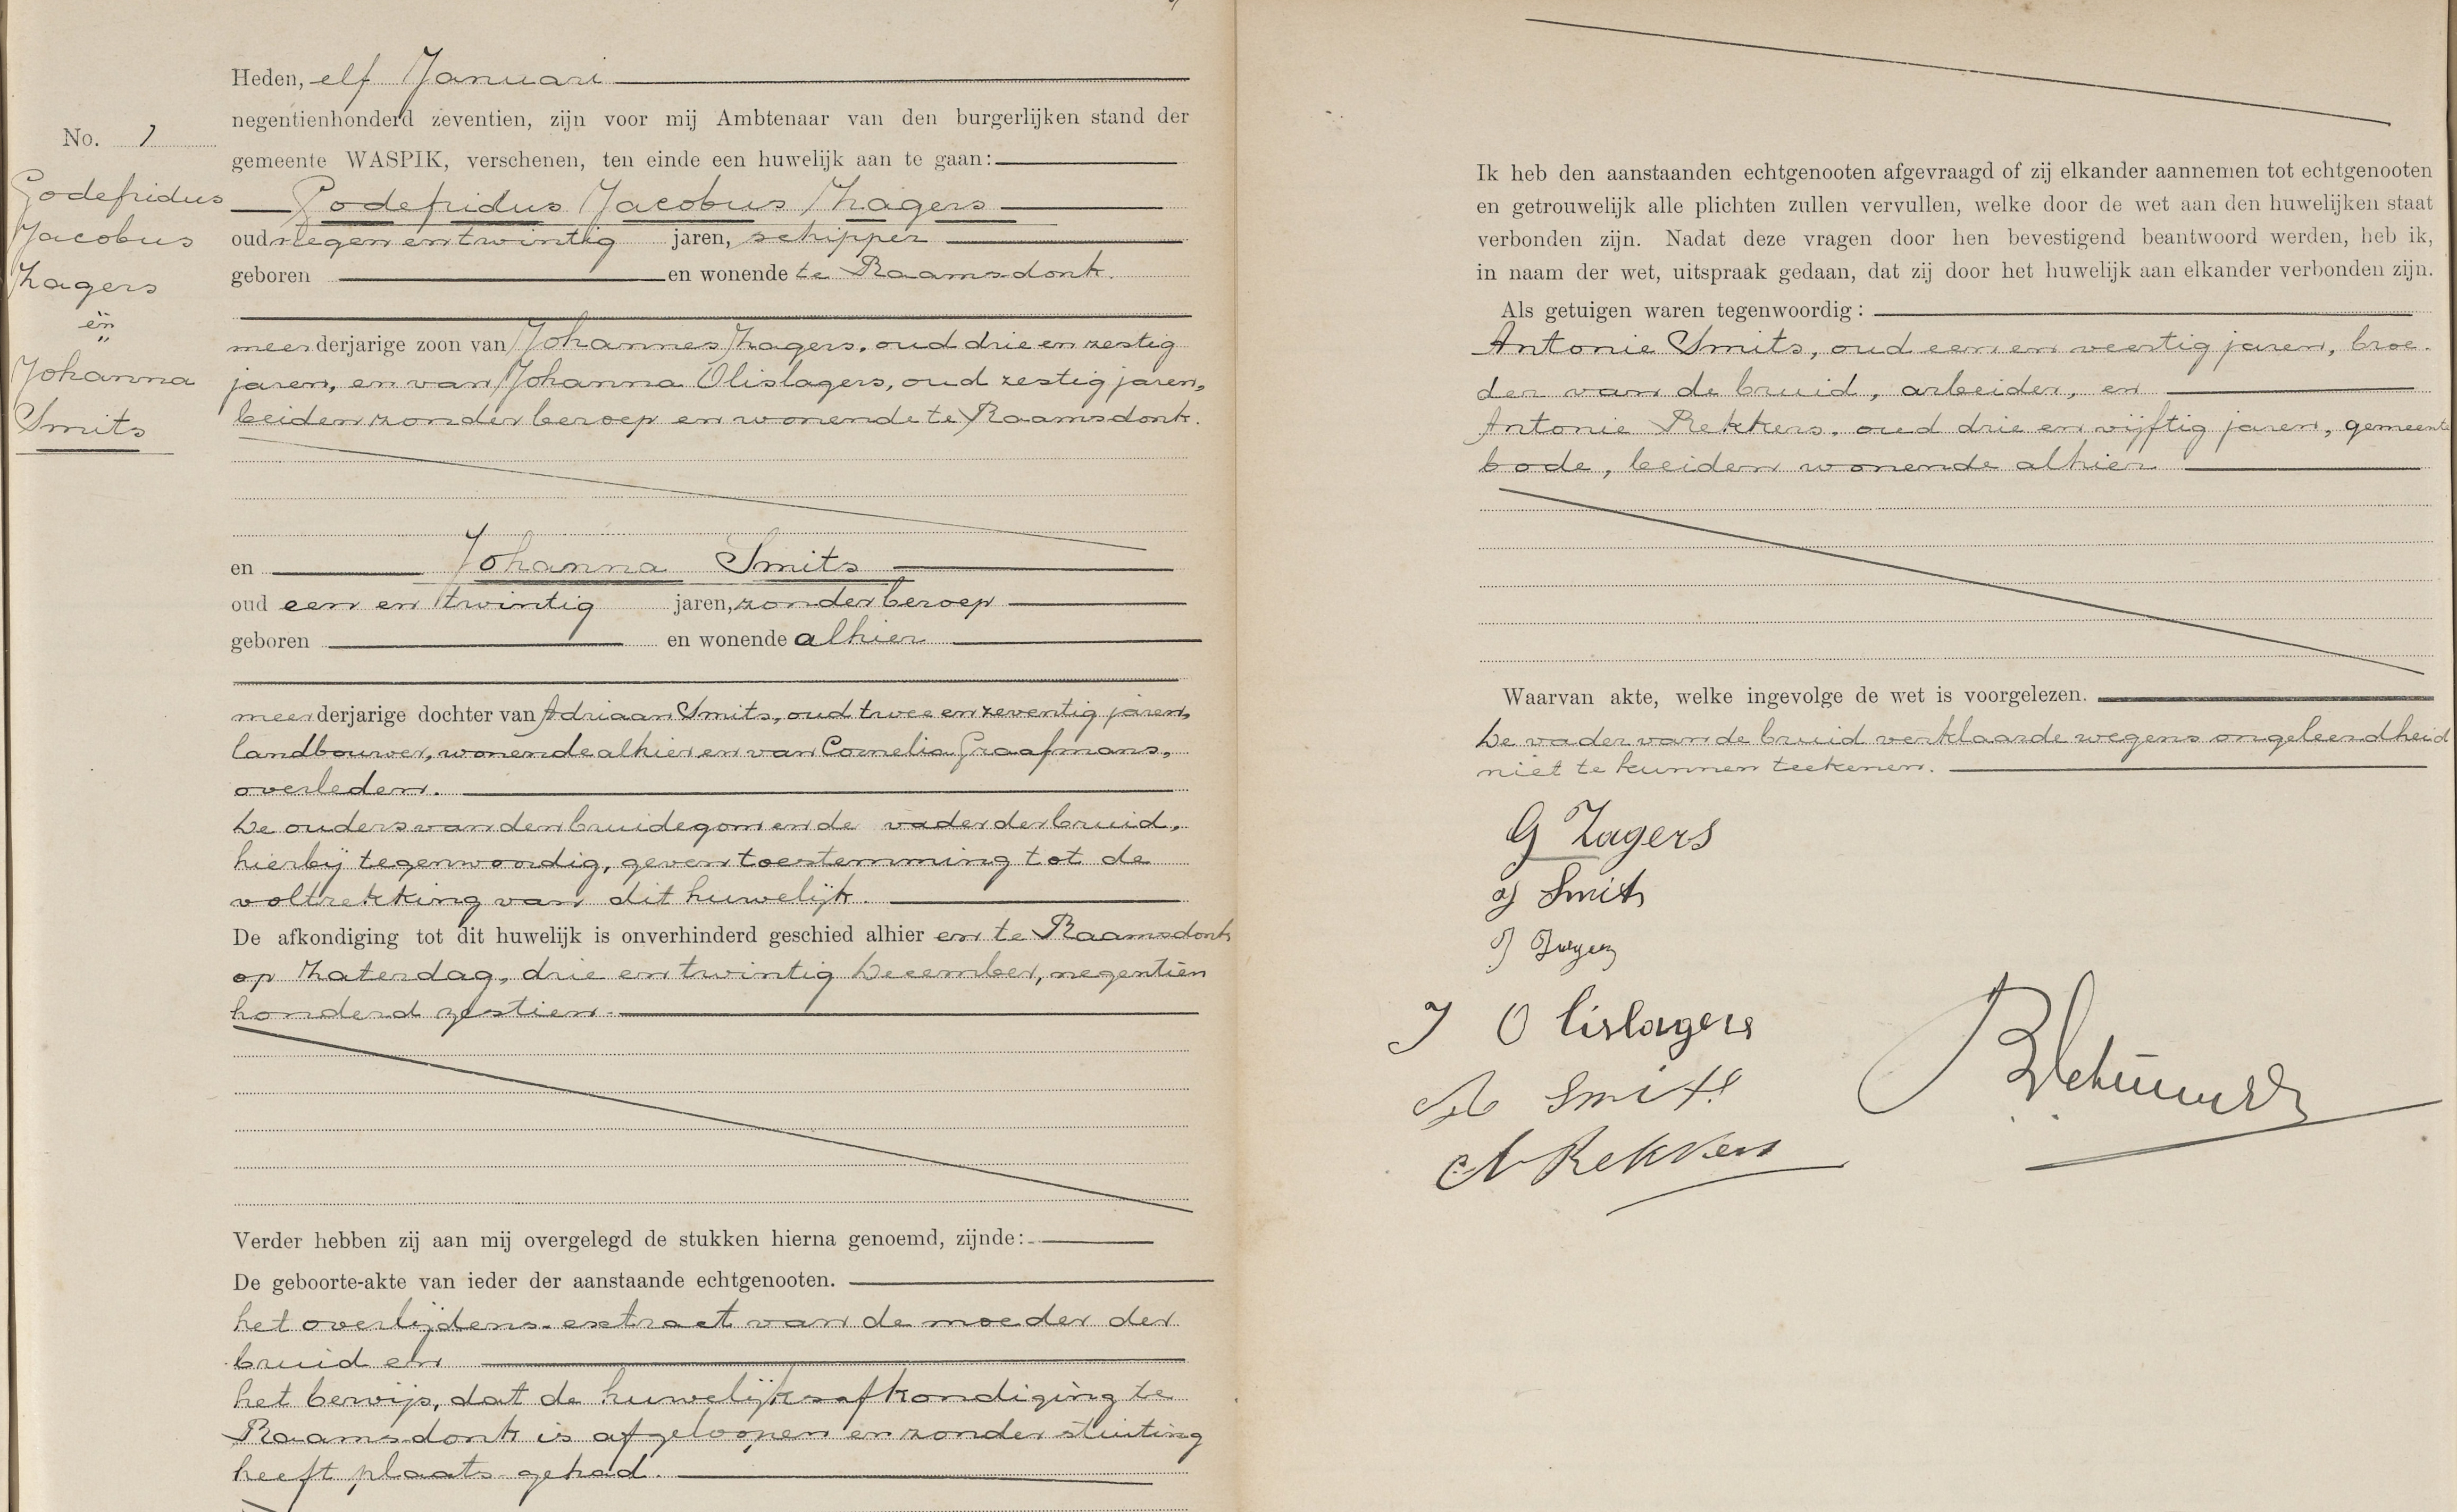 Heden, elf Januari
negentienhonderd zeventien, zijn voor mij Ambtenaar van den burgerlijken stand der
gemeente WASPIK, verschenen, ten einde een huwelijk aan te gaan:
No. 1
Godefridus
Jacobus
Zagers
en
Johanna
Smits
Godefridus Jacobus Zagers
oud negen en twintig jaren, schipper
geboren en wonende te Raamsdonk.
meerderjarige zoon van Johannes Zagers, oud drie en zestig
jaren, en van Johanna Olislagers, oud zestig jaren,
beiden zonder beroep en wonende te Raamsdonk.
en Johanna Smits
oud een en twintig jaren, zonder beroep
geboren en wonende alhier
meerderjarige dochter van Adriaan Smits, oud twee en zeventig jaren,
landbouwer, wonende alhier en van Cornelia Graafmans,
overleden.
De ouders van den bruidegom en de vader der bruid,
hierbij tegenwoordig, geven toestemming tot de
voltrekking van dit huwelijk.
De afkondiging tot dit huwelijk is onverhinderd geschied alhier en te Raamsdonk
op Zaterdag, drie en twintig December, negentien
honderd zestien.
Verder hebben zij aan mij overgelegd de stukken hierna genoemd, zijnde:
De geboorte-akte van ieder der aanstaande echtgenooten.
het overlijdens-extract van de moeder der
bruid en
het bewijs, dat de huwelijksafkondiging te
Raamsdonk is afgeloopen en zonder stuiting
heeft plaats gehad.
Ik heb den aanstaanden echtgenooten afgevraagd of zij elkander aannemen tot echtgenooten
en getrouwelijk alle plichten zullen vervullen, welke door de wet aan den huwelijken staat
verbonden zijn. Nadat deze vragen door hen bevestigend beantwoord werden, heb ik,
in naam der wet, uitspraak gedaan, dat zij door het huwelijk aan elkander verbonden zijn.
Als getuigen waren tegenwoordig:
Antonie Smits, oud een en veertig jaren, broe-
der van de bruid, arbeider, en
Antonie Rekkers, oud drie en vijftig jaren, gemeente
bode, beiden wonende alhier
Waarvan akte, welke ingevolge de wet is voorgelezen.
De vader van de bruid verklaarde wegens ongeleerdheid
niet te kunnen teekenen.
G Zagers
J Smits
J
J Olislagers
A Smits
A Rekkers